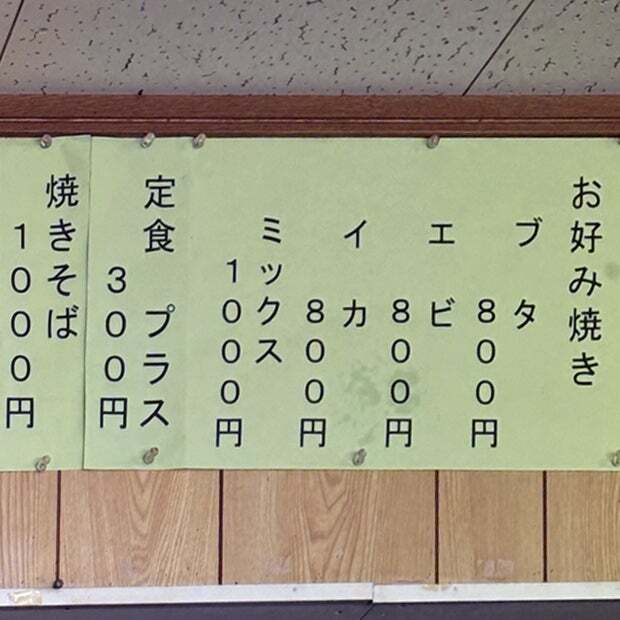 お好み焼き
ブタ
800円
エビ
800円
イカ
800円
ミックス
1000円
定食 プラス
300円
焼きそば
1000円